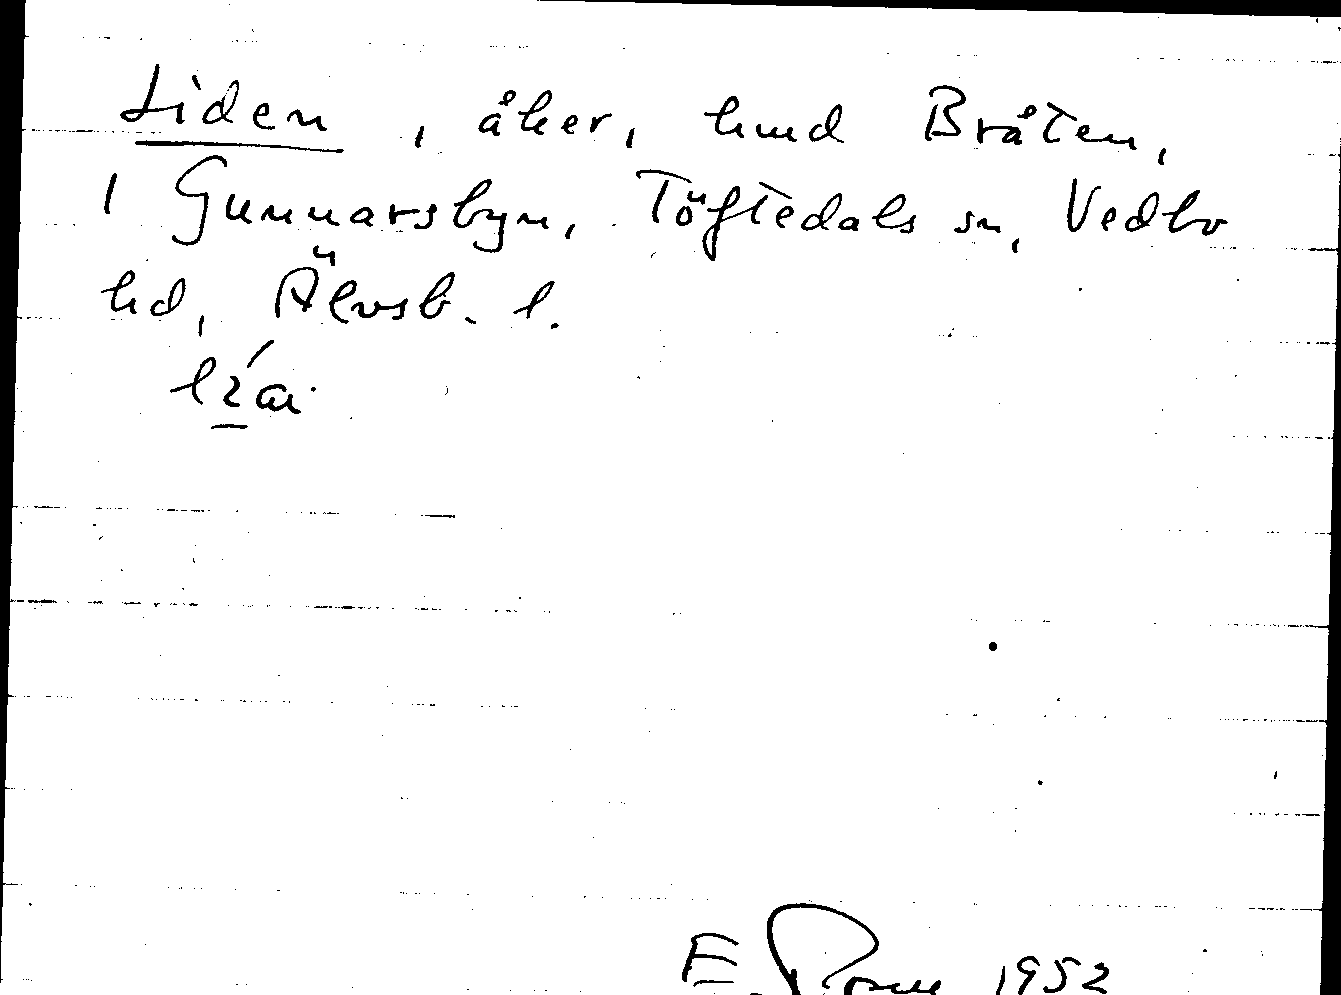 Liden, åker, hmd Bråten,
1 Gunnarsbyn, Töftedals sn, Vedbo
hd, Älvsb. l.
E. Rosell 1952